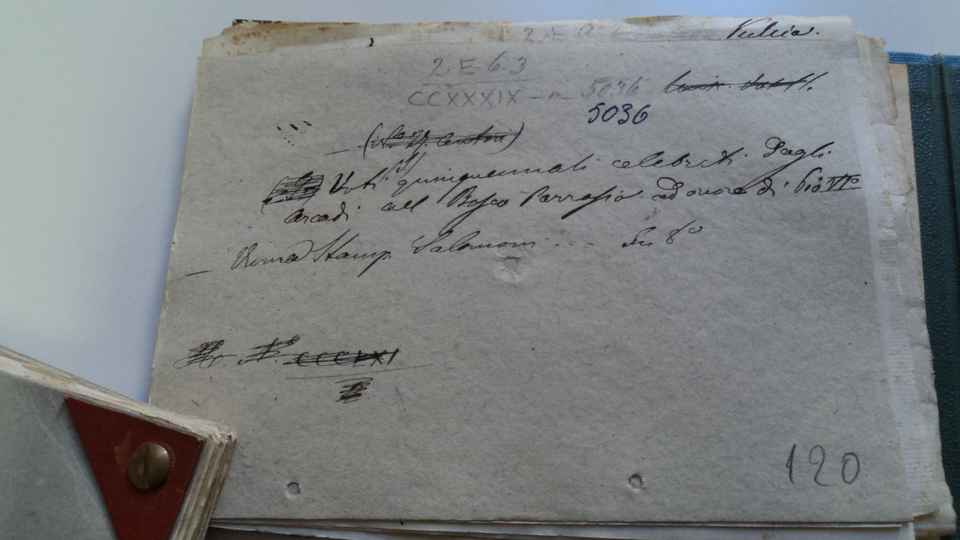 2. E 6. 3
CCXXXIX - n - 5036
5036
Voti quinquennali celebrati dagli
Arcadi nel Bosco Parrasio ad onore di Pio VI°
— Roma Stamp. Salomoni ... In 8°
CCCLXI
120